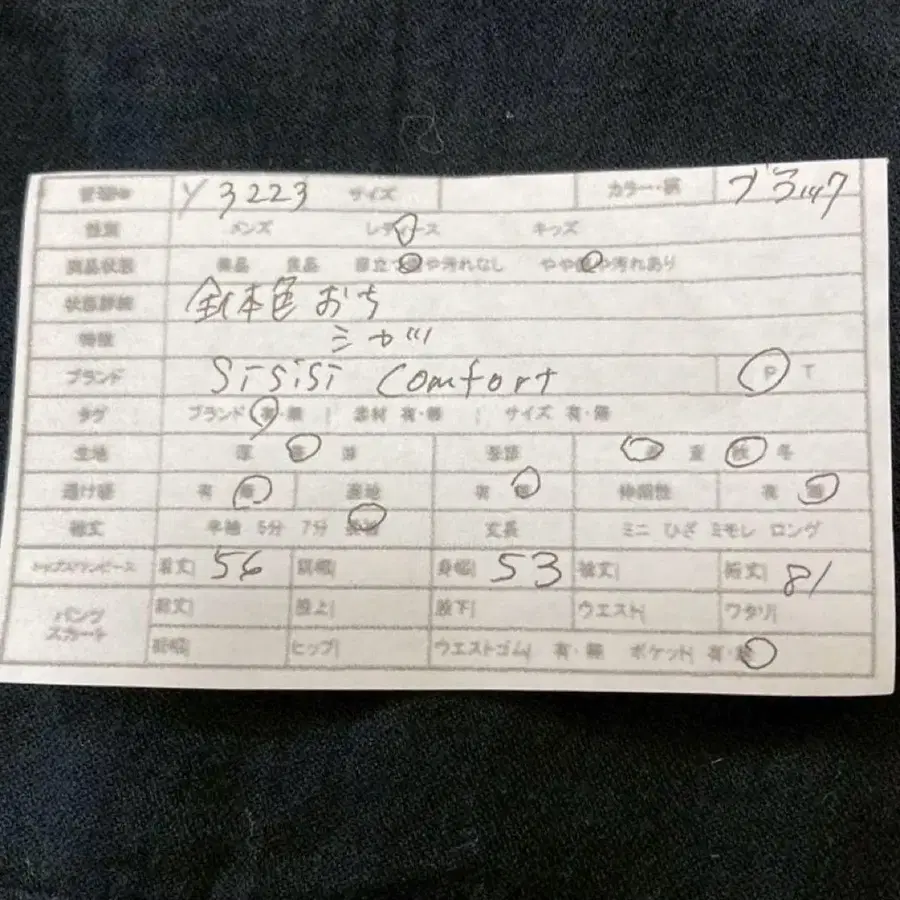 Y 3223 サイズ カラー・柄
性別 メンズ レディース キッズ
商品状態 美品 良品 目立つ傷や汚れなし やや傷や汚れあり
状態詳細 全体色おち
特徴
ブランド SiSiSi Comfort P T
タグ ブランド 有・無 素材 有・無 サイズ 有・無
生地 厚 普 薄 季節 春 夏 秋 冬
透け感 有 無 裏地 有 無 伸縮性 有 無
袖丈 半袖 5分 7分 長袖 丈長 ミニ ひざ ミモレ ロング
トップス/ワンピース 着丈 56 肩幅 身幅 53 袖丈 裄丈 81
パンツ スカート 総丈 股上 股下 ウエスト ワタリ
裾幅 ヒップ ウエストゴム 有・無 ポケット 有・無